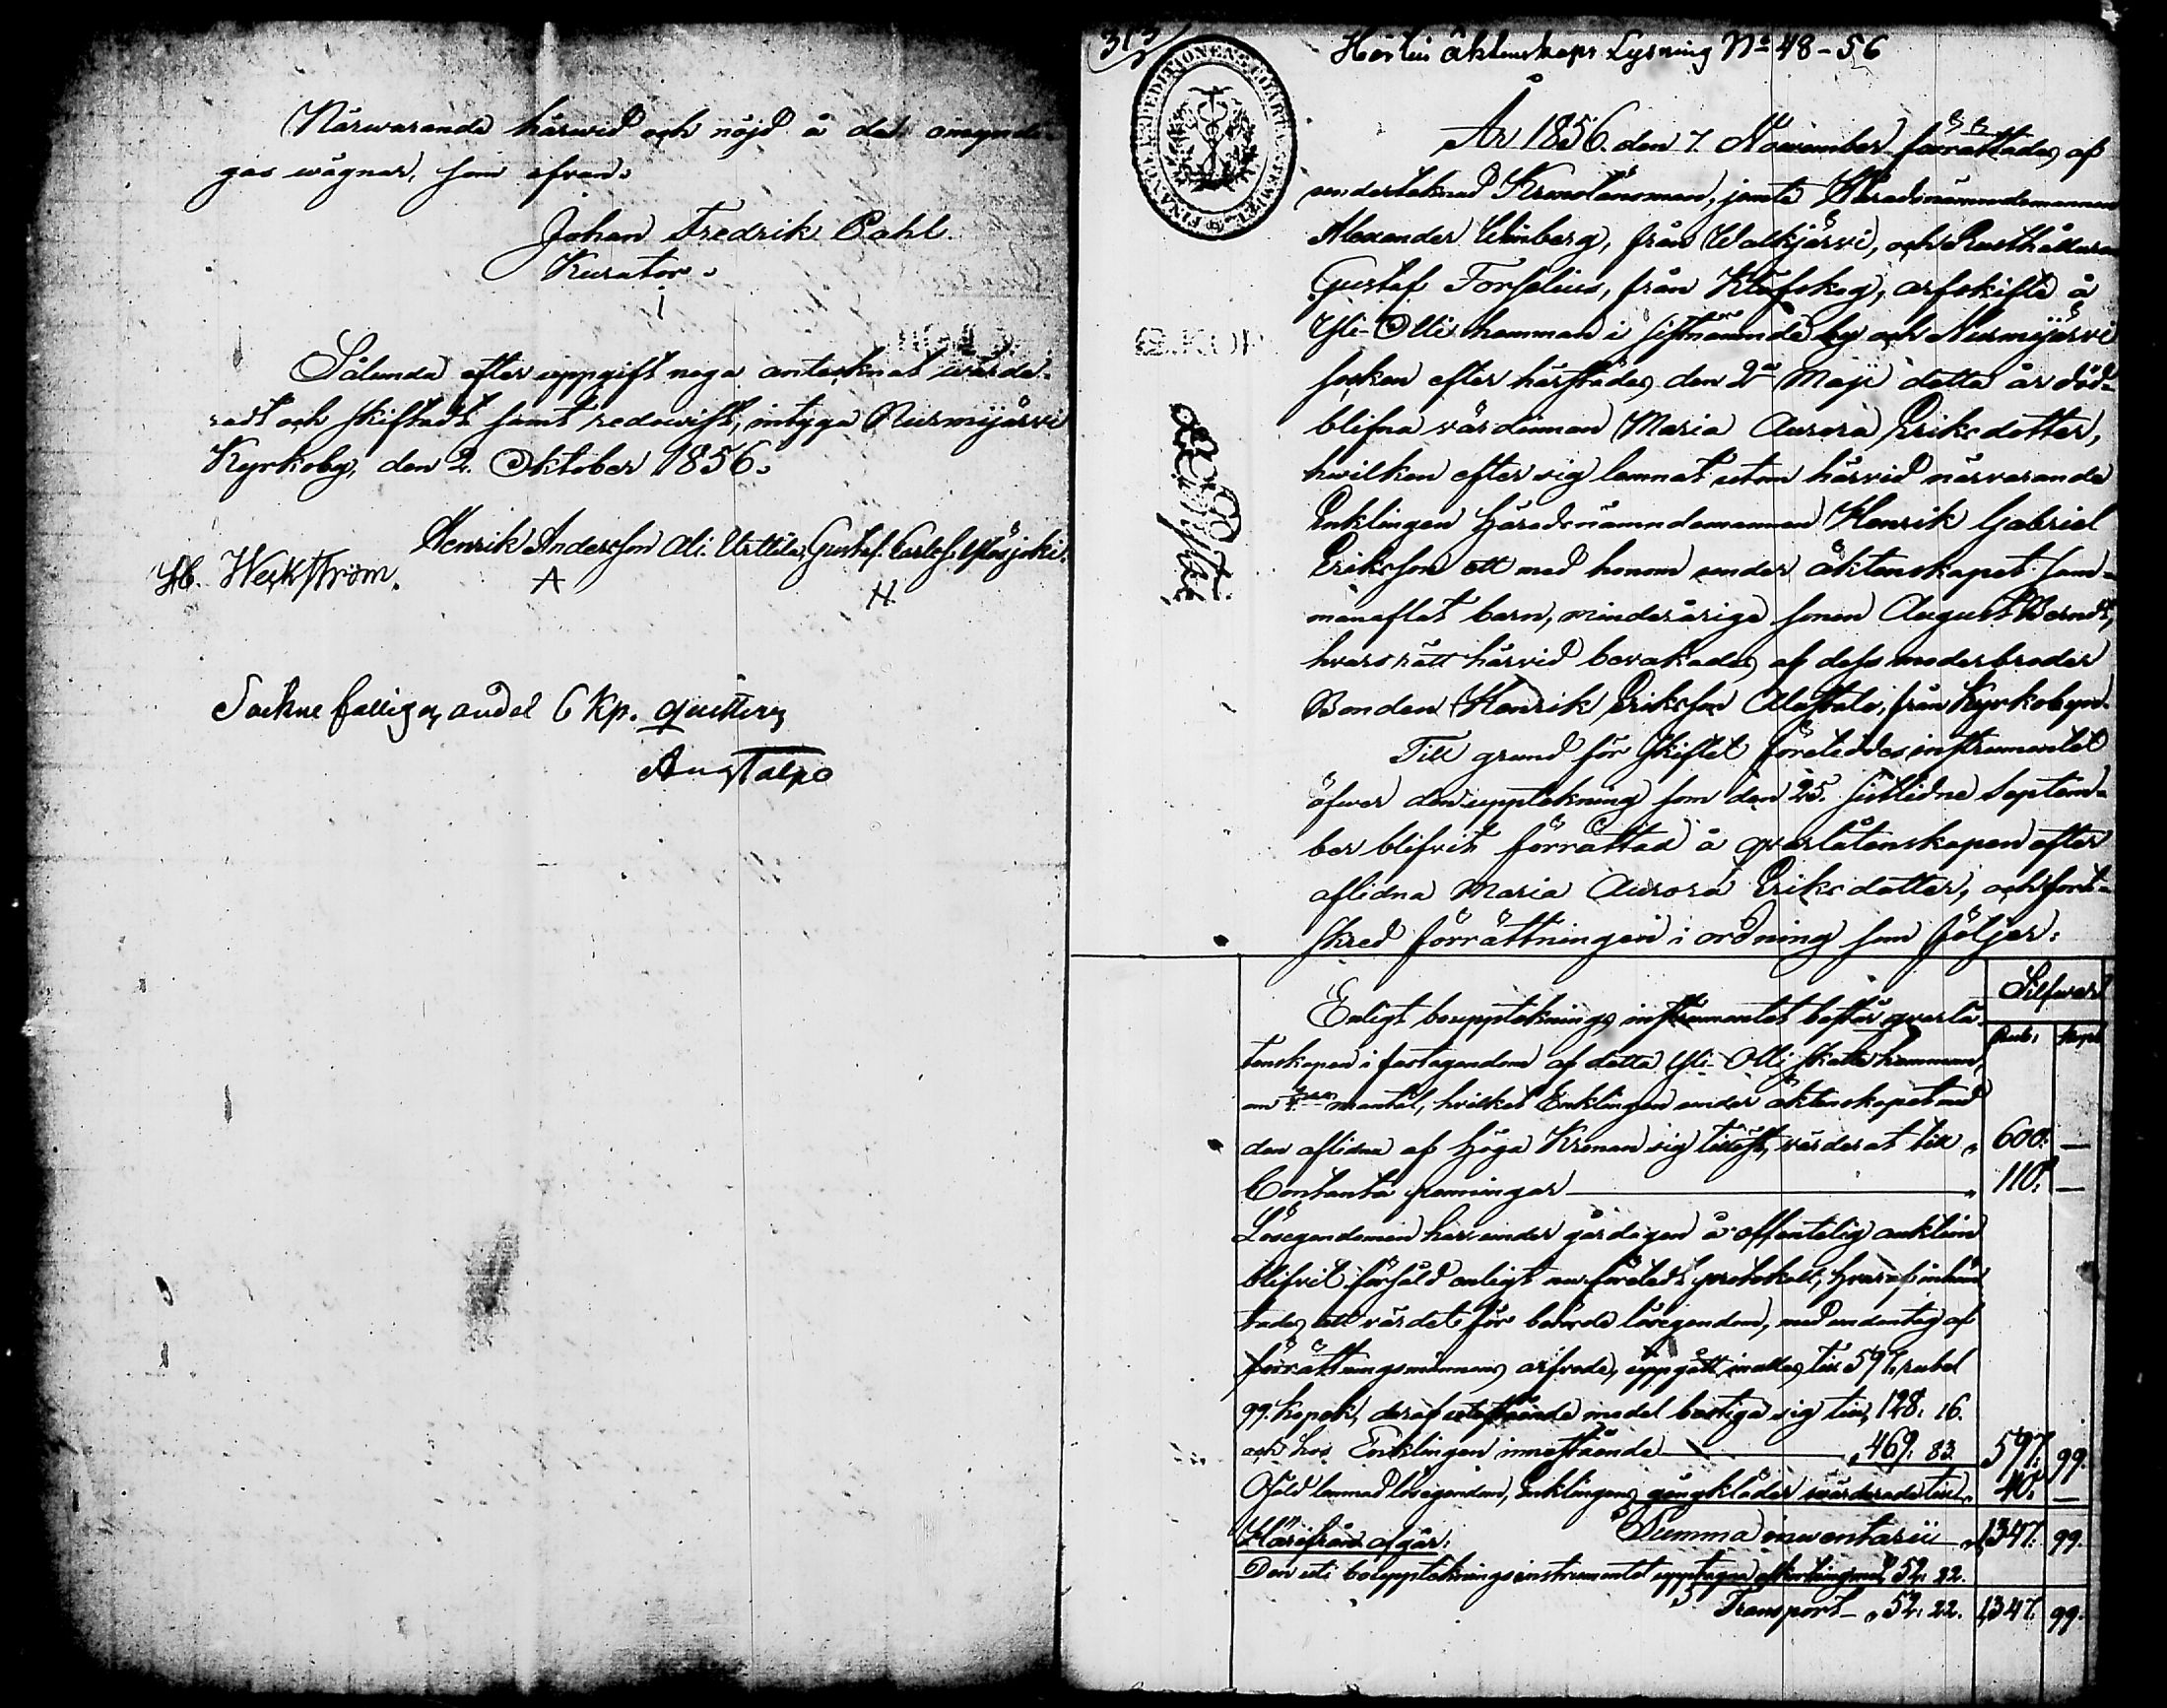 Närwarande härwid och nöjd å de omyndi-
gas wägnar, som ofvan.
Johan Fredrik Dahl.
Kurator.
Sålunda efter uppgift noga antecknat wärde-
radt och skiftadt samt redovist, intyga Nurmijärvi
Kyrkoby, den 2. Oktober 1856.
Henrik Andersson Ali Urttila, Gustaf Carlss. Yläsjoki.
Weckström.
A
H
Socknefattiges andel 6 Kp. qvitteras
313/
Hörlin äktenskaps Lysning No 48-56
FINANCE EXPEDITIONENS CHARTÆ STEMPEL
År 1856 den 7. November förrättades af
undertecknad Kronolänsman, jemte Häradsnämndemannen
Alexander Winberg, från Walkjärvi, och Rusthållaren
Gustaf Forselius, från Klöfskog, arfskifte å
Yli-Olli hemman i sistnämnde by och Nurmijärvi
socken efter härstädes den 2 Maji detta år död-
blifna värdinnan Maria Aurora Eriksdotter,
hwilken efter sig lemnat utom härvid närvarande
Enklingen Häradsnämndemannen Henrik Gabriel
Eriksson ett med honom under äktenskapet sam-
manaflat barn, minderårige sonen August Berndt,
hvars rätt härvid bevakades af dess moderbroder
Bonden Henrik Eriksson Alastalo, från Kyrkobyn.
Till grund för skiftet företeddes instrumentet
öfwer den uppteckning som den 25. sistlidne Septem-
ber blifvit förrättad å qvarlåtenskapen efter
aflidna Maria Aurora Eriksdotter, och fort-
skred förrättningen i ordning som följer:
Silfwer
Enligt bouppteknings instrumentet består qvarlå-
Rub: Kop:
tenskapen i fastegendom af detta Yli-Olli skatte hemman,
om mantal, hvilket Enklingen under äktenskapet med
den aflidna af Höga Kronan sig tillöst, värderat till " 600. —
Contanta penningar — " 110. —
Lösegendomen har under gårdagen å offentelig auktion
blifvit försåld enligt nu företedt protokoll, hvaraf inhäm-
tades att värdet för berörde lösegendom, med undantag af
förrättningsmännens arfvode, uppgått inalles till 597, rubel
99. kopek, deraf utestående medel bestiga sig till 128. 16.
och hos Enklingen innestående — " 469. 83. 597. 99.
Osåld lemnad lösegendom, Enklingens gångkläder värderade till " 40. —
Härifrån afgår: Summa inventarii — " 1347. 99.
Den uti bouppteckningsinstrumentet upptagna 52. 22.
Transport — " 52. 22. 1347. 99.